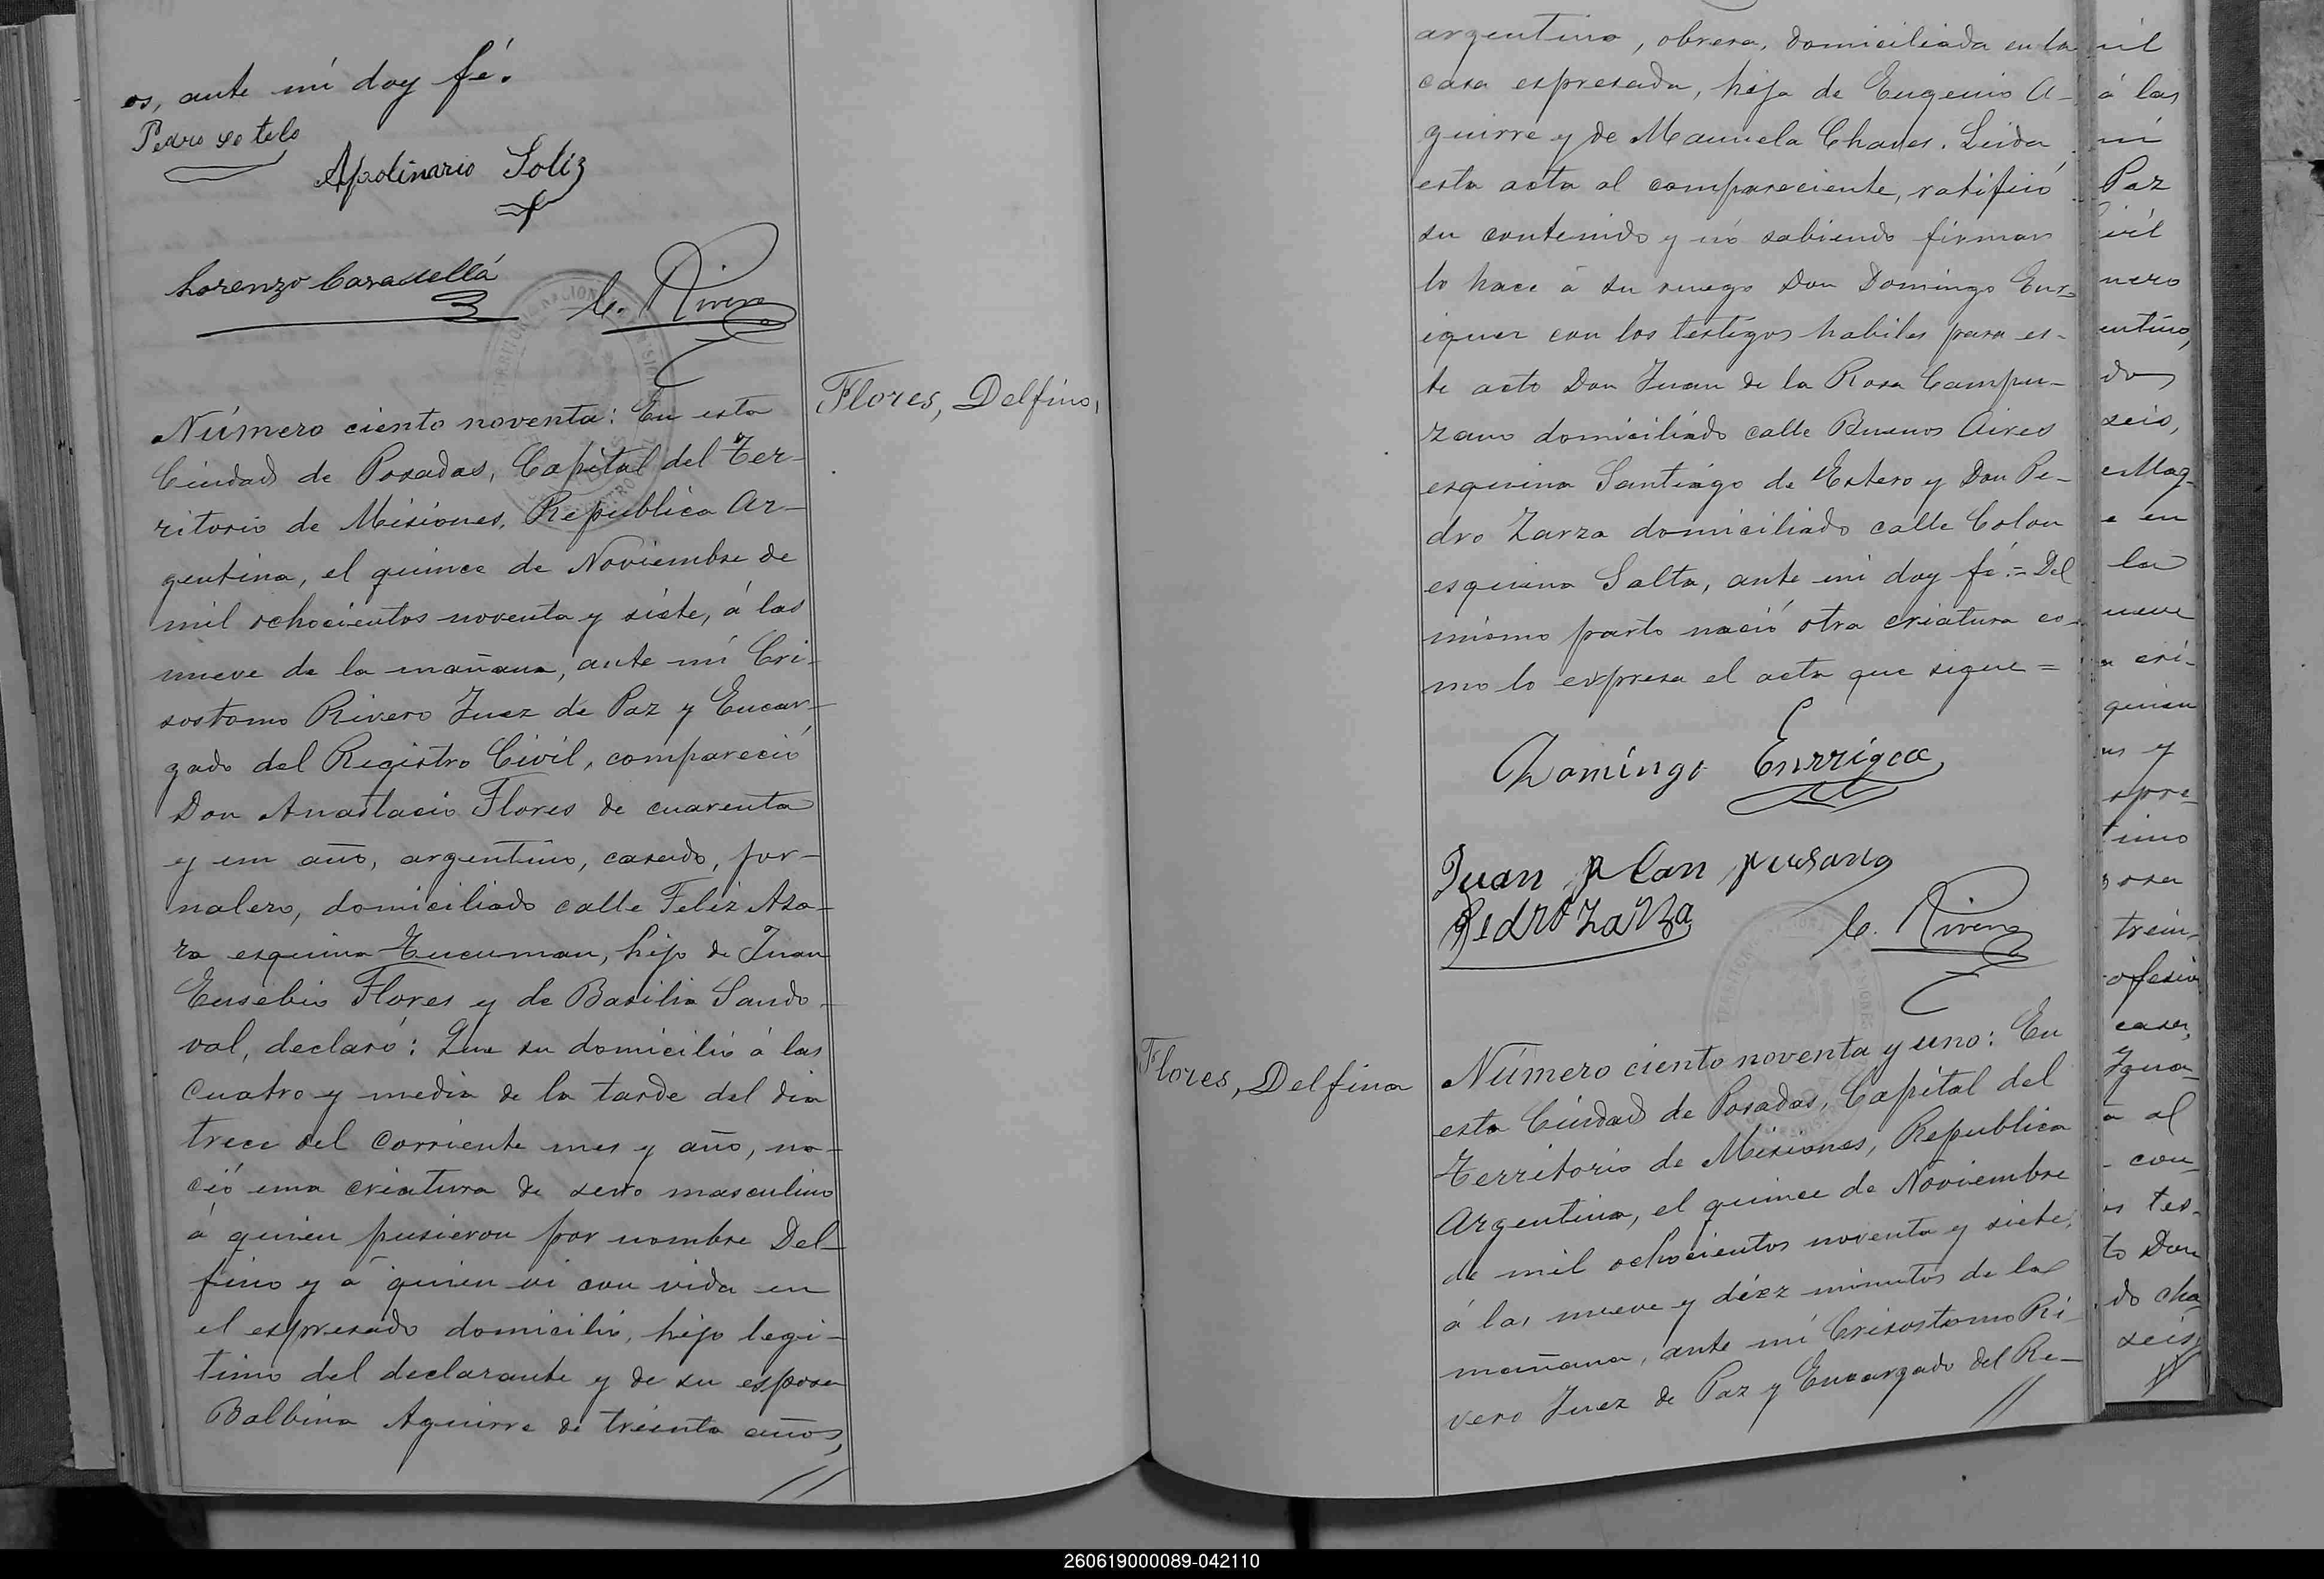 os, ante mí doy fé.
Pedro Sotelo
Apolinario Soliz
Lorenzo
C. Rivero
Flores, Delfino,
Número ciento noventa: En esta
Ciudad de Posadas, Capital del Ter-
ritorio de Misiones, Republica Ar-
gentina, el quince de Noviembre de
mil ochocientos noventa y siete, á las
nueve de la mañana, ante mí Cri-
sostomo Rivero Juez de Paz y Encar-
gado del Registro Civil, compareció
Don Anastacio Flores de cuarenta
y un año, argentino, casado, jor-
nalero, domiciliado calle Feliz Aza-
ra esquina Tucuman, hijo de Juan
Eusebio Flores y de Basilia Sando-
val, declaró: Que su domicilio á las
cuatro y media de la tarde del dia
trece del corriente mes y año, na-
ció una criatura de sexo masculino
á quien pusieron por nombre Del-
fino y á quien vi con vida en
el espresado domicilio, hijo legi-
timo del declarante y de su esposa
Balbina Aguirre de treinta años,
//
argentina, obrera, domiciliada en la
casa espresada, hija de Eugenio A-
guirre y de Manuela Chaves. Leida
esta acta al compareciente, ratificó
su contenido y nó sabiendo firmar
lo hace á su ruego Don Domingo Enr-
iquez con los testigos habiles para es-
te acto Don Juan de la Rosa Campu-
zano domiciliado calle Buenos Aires
esquina Santiago de Estero y Don Pe-
dro Zarza domiciliado calle Colon
esquina Salta, ante mi doy fé.= Del
mismo parto nació otra criatura co-
mo lo expresa el acta que sigue =
Domingo
Juan
Pedro Zarza
C. Rivero
Flores, Delfina
Número ciento noventa y uno: En
esta Ciudad de Posadas, Capital del
Territorio de Misiones, Republica
Argentina, el quince de Noviembre
de mil ochocientos noventa y siete,
á las nueve y diez minutos de la
mañana, ante mí Crisostomo Ri-
vero Juez de Paz y Encargado del Re-
//
á las
mi
Paz
ivil
nero
entino,
do
seis,
e en
la
nueve
a cri-
quien
timo
posa
trein-
casa,
a al
con
tes-
to Don
do cha
seis,
260619000089-042110